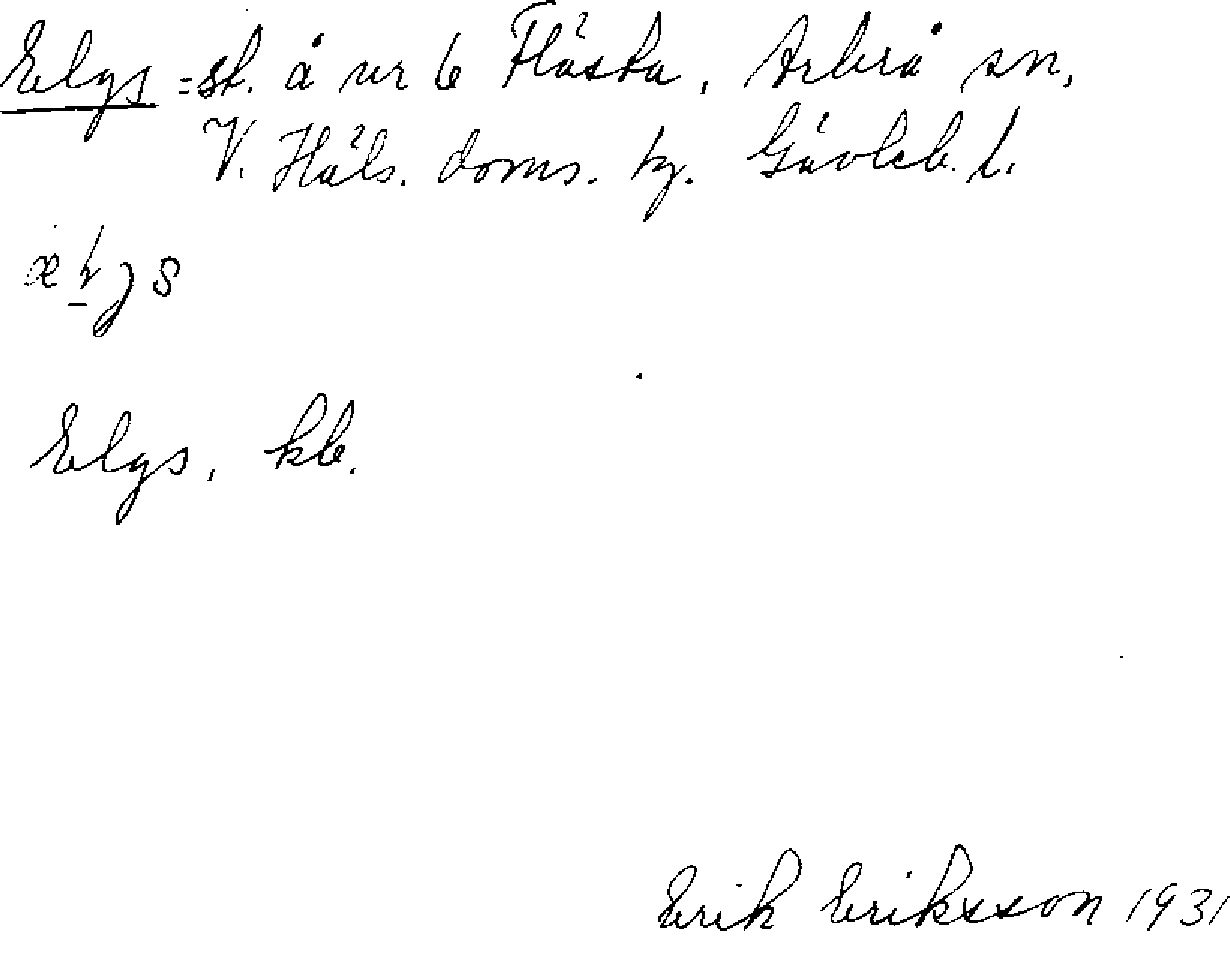 Elgs = st. å nr 6 Flästa, Arbrå sn,
V. Häls. doms. hg. Gävleb. l.
Elgs, kb.
Erik Eriksson 1931